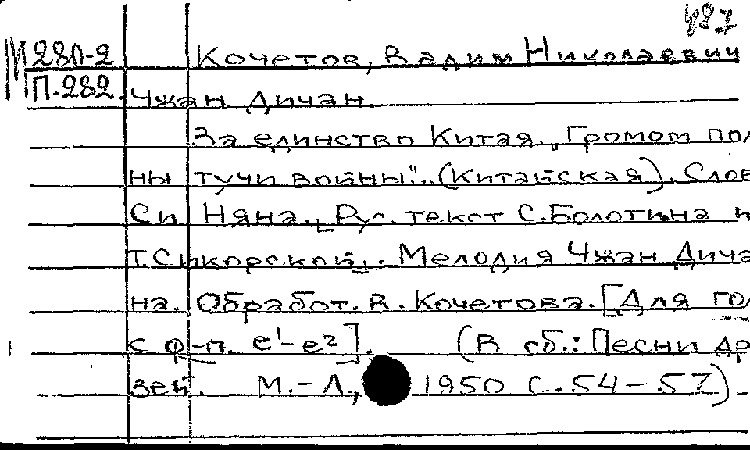 487
М280-2 Кочетов, Вадим Николаевич
П.282 Чжан Дичан.
За единство Китая. „Громом пол
ны тучи войны". (Китайская). Слов
Си Няна. Рус. текст С.Болотина и
Т.Сикорской. Мелодия Чжан Дича
на. Обработ. В. Кочетова. [Для гол
с ф-п. e¹-e²]. (В сб.: Песни др
зей. М.-Л., 1950 с.54-57)